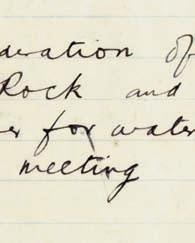 deration of
Rock and
er for water
meeting